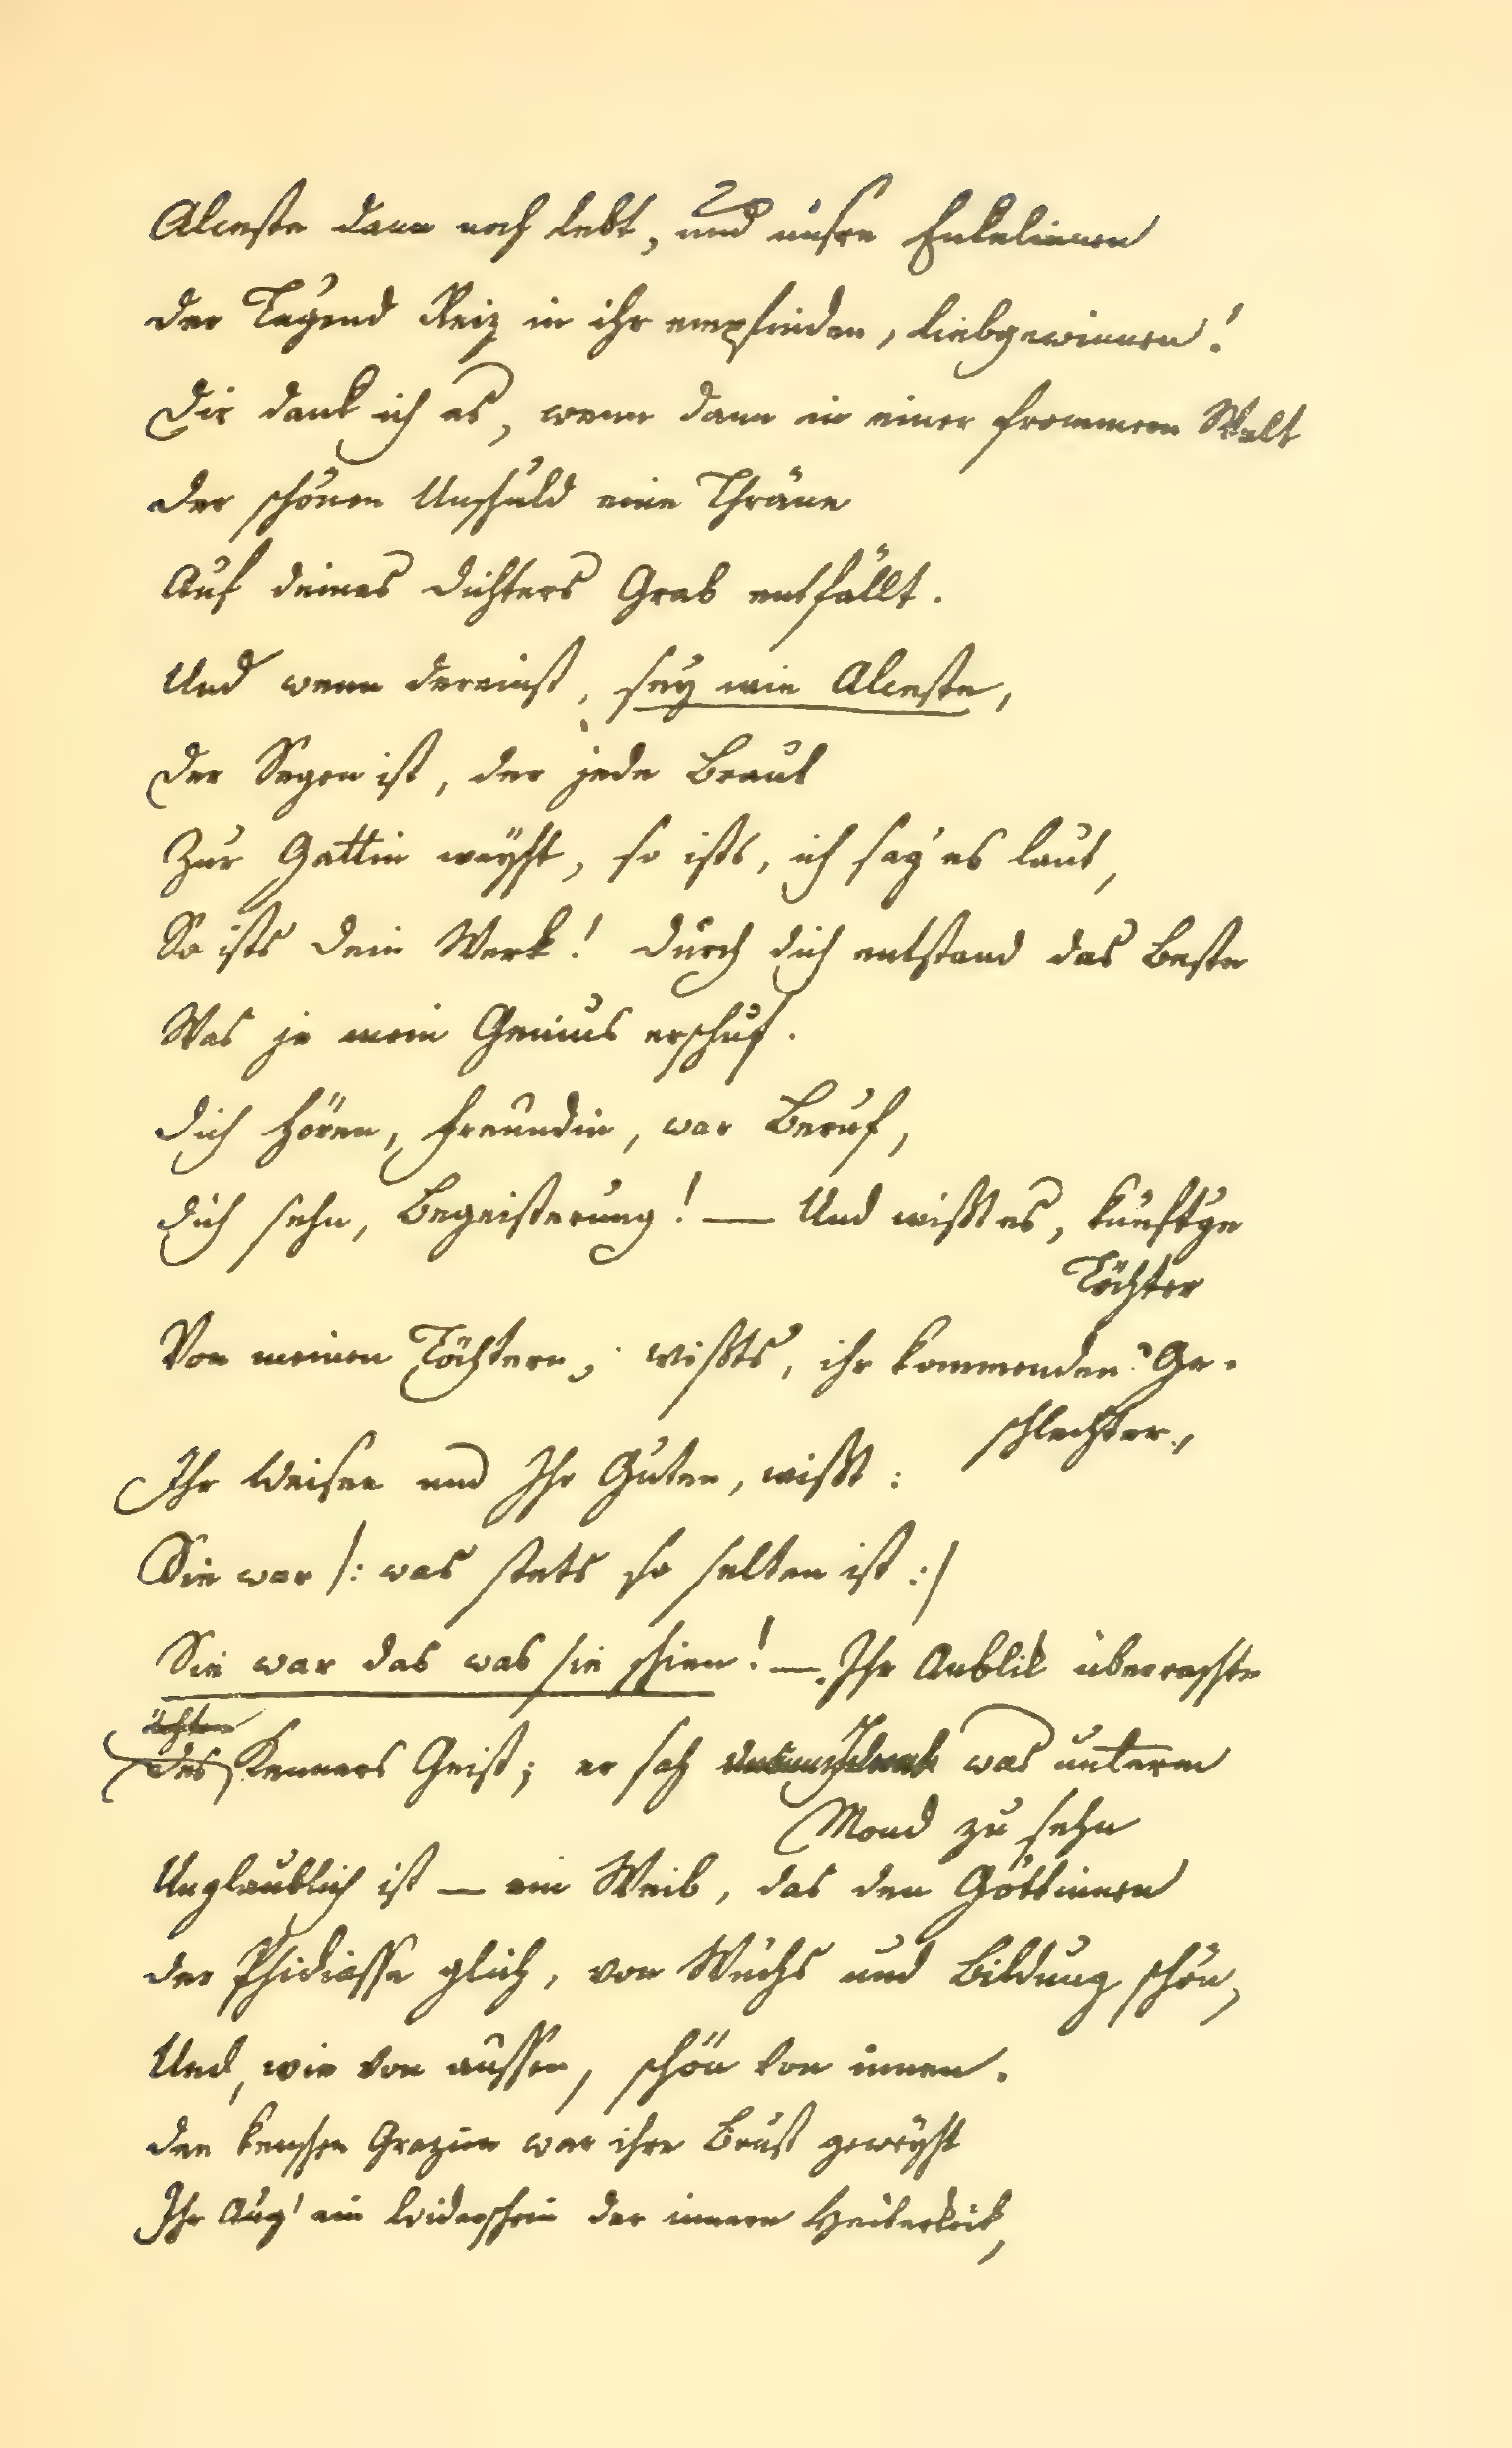 Alceste dann noch lebt, und unsre Enkelinnen
der Tugend Reiz in ihr empfinden, liebgewinnen!
Dir dank ich es, wenn dann in einer frommern Welt
der schönen Unschuld eine Thräne
Auf deines Dichters Grab entfällt.
Und wenn dereinst, sey wie Alceste,
Der Segen ist, der jede Braut
Zur Gattin weyht, so ists, ich sag' es laut,
So ists dein Werk! Durch dich entstand das Beste
Was je mein Genius erschuf.
Dich hören, Freundin, war Beruf,
Dich sehn, Begeisterung! — Und wißt es, künftge
Töchter
Von meinen Töchtern; wißts, ihr kommenden Ge-
schlechter,
Ihr Weisen und Ihr Guten, wißt:
Sie war /: was stets so selten ist :/
Sie war das was sie schien! — Ihr Anblik überraschte
ächten
des Kenners Geist; er sah was unterm
Mond zu sehn
Unglaublich ist — ein Weib, das den Göttinnen
der Phidiasse glich, von Wuchs und Bildung schön,
Und, wie von aussen, schön von innen.
den keuschen Grazien war ihre Brust geweyht
Ihr Aug' ein Widerschein der innern Heiterkeit,